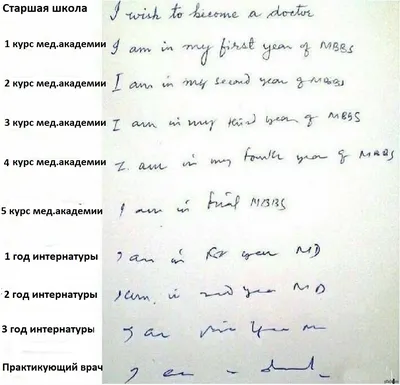 Старшая школа I wish to become a doctor
1 курс мед.академии I am in my first year of MBBS
2 курс мед.академии I am in my second year of MBBS
3 курс мед.академии I am in my third year of MBBS
4 курс мед.академии I am in my fourth year of MBBS
5 курс мед.академии I am in final MBBS
1 год интернатуры I am in year MD
2 год интернатуры I am in 2nd year MD
3 год интернатуры year
Практикующий врач